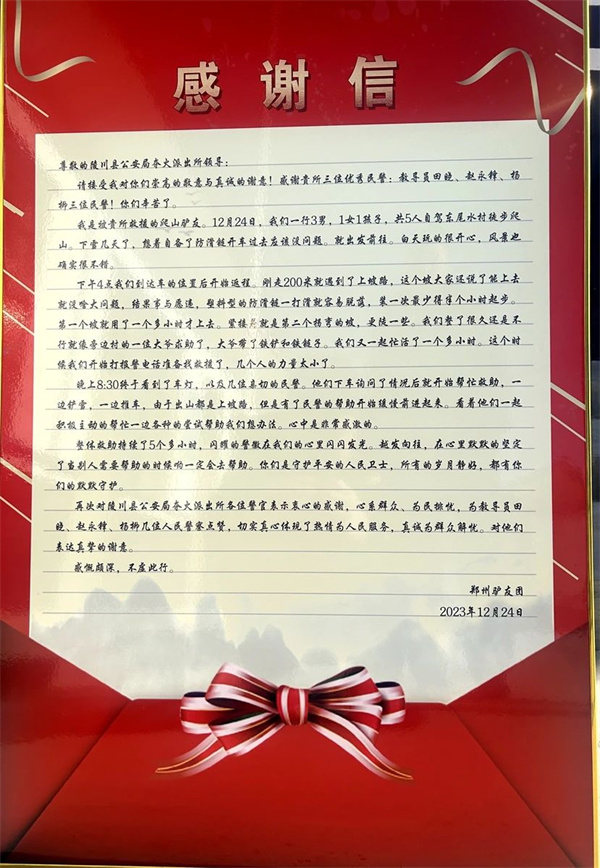 感谢信
尊敬的陵川县公安局夺火派出所领导：
请接受我对你们崇高的敬意与真诚的谢意！感谢贵所三位优秀民警：教导员田晚、赵永锋、杨
柳三位民警！你们辛苦了。
我是被贵所救援的爬山驴友。12月24日，我们一行3男，1女1孩子，共5人自驾东尼水村徒步爬
山。下雪几天了，想着自备了防滑链开车过去应该没问题。就出发前往。白天玩的很开心，风景也
确实很不错。
下午4点我们到达车的位置后开始返程。刚走200米就遇到了上坡路，这个坡大家还说了能上去
就没啥大问题，结果事与愿违，塑料型的防滑链一打滑就容易脱落，装一次最少得半个小时起步。
第一个坡就用了一个多小时才上去。紧接着就是第二个拐弯的坡，更陡一些。我们整了很久还是不
行就像旁边村的一位大爷求助了，大爷带了铁铲和铁链子。我们又一起忙活了一个多小时。这个时
候我们开始打报警电话准备找救援了，几个人的力量太小了。
晚上8:30终于看到了车灯，以及几位亲切的民警。他们下车询问了情况后就开始帮忙救助，一
边铲雪，一边推车，由于出山都是上坡路，但是有了民警的帮助开始缓慢前进起来。看着他们一起
积极主动的帮忙一边各种的尝试帮助我们想办法。心中是非常感激的。
整体救助持续了5个多小时，闪耀的警徽在我们的心里闪闪发光。越发向往，在心里默默的坚定
了当别人需要帮助的时候哟一定会去帮助。你们是守护平安的人民卫士，所有的岁月静好，都有你
们的默默守护。
再次对陵川县公安局夺火派出所各位警官表示衷心的感谢，心系群众、为民排忧，为教导员田
晚、赵永锋、杨柳几位人民警察点赞，切实真心体现了热情为人民服务，真诚为群众解忧。对他们
表达真挚的谢意。
感慨颇深，不虚此行。
郑州驴友团
2023年12月24日